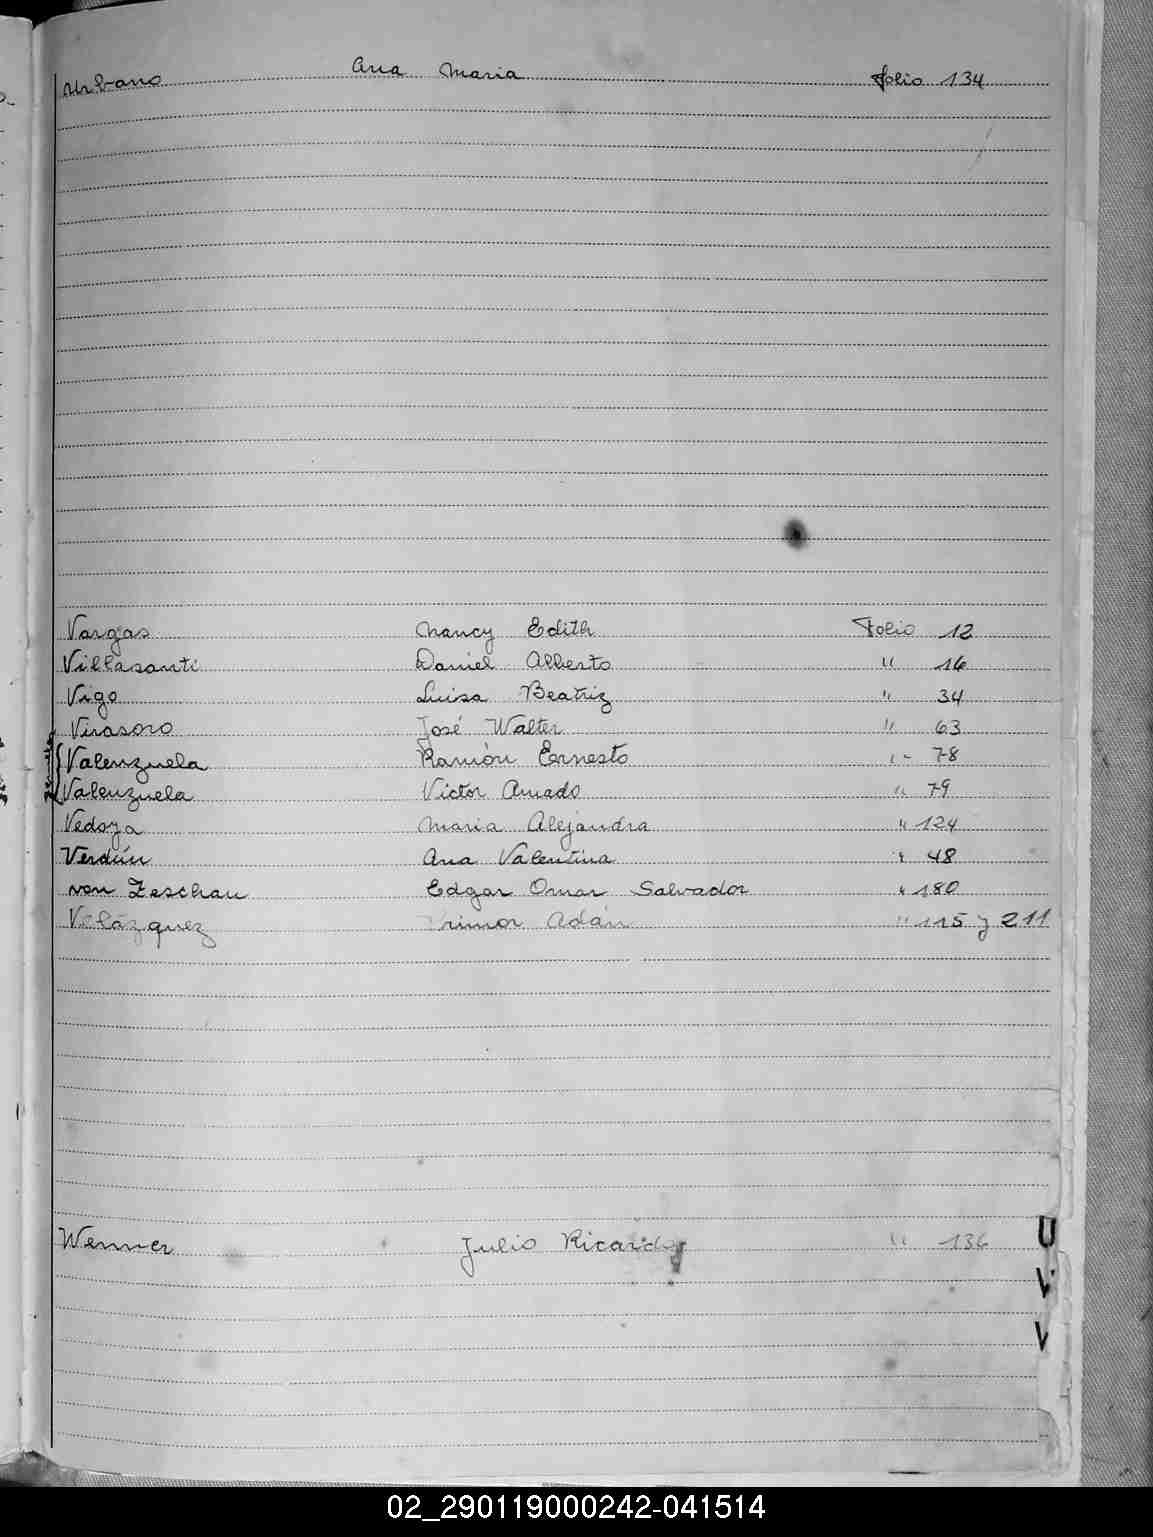 Urbano Ana Maria folio 134
Vargas Nancy Edith Folio 12
Villasanti Daniel Alberto " 16
Vigo Luisa Beatriz " 34
Virasoro José Walter " 63
Valenzuela Ramón Ernesto " 78
Valenzuela Victor Amado " 79
Vedoya Maria Alejandra " 124
Verdún Ana Valentina " 48
von Zeschau Edgar Omar Salvador " 180
Velázquez Adán " 115 y 211
Werner Julio Ricardo " 136
U
V
V
02_290119000242-041514